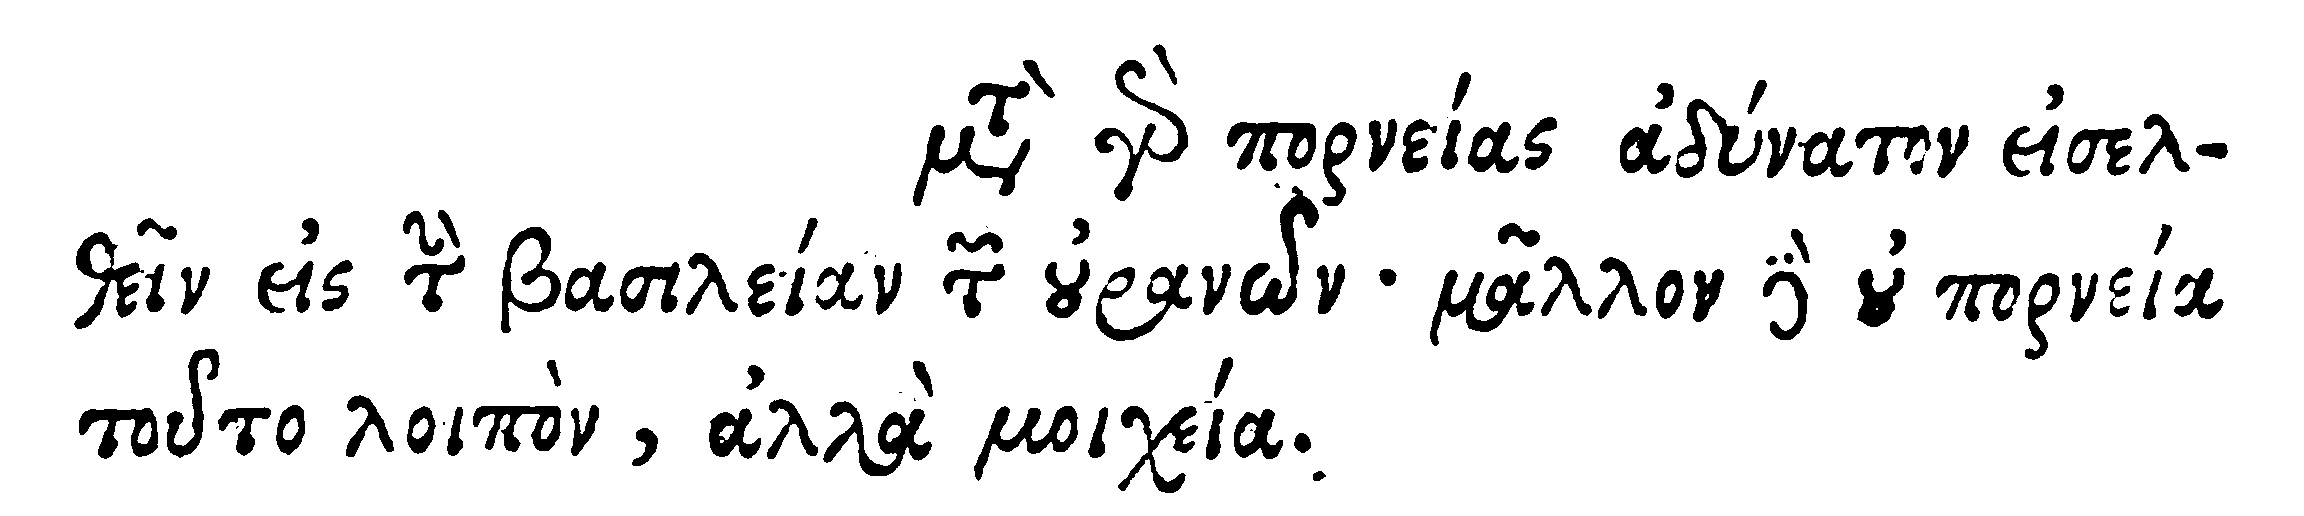 μετὰ γὰρ πορνείας ἀδύνατον εἰσελ-
θεῖν εἰς τὴν βασιλείαν τῶν οὐρανῶν· μᾶλλον δὲ οὐ πορνεία
τοῦτο λοιπὸν, ἀλλὰ μοιχεία.